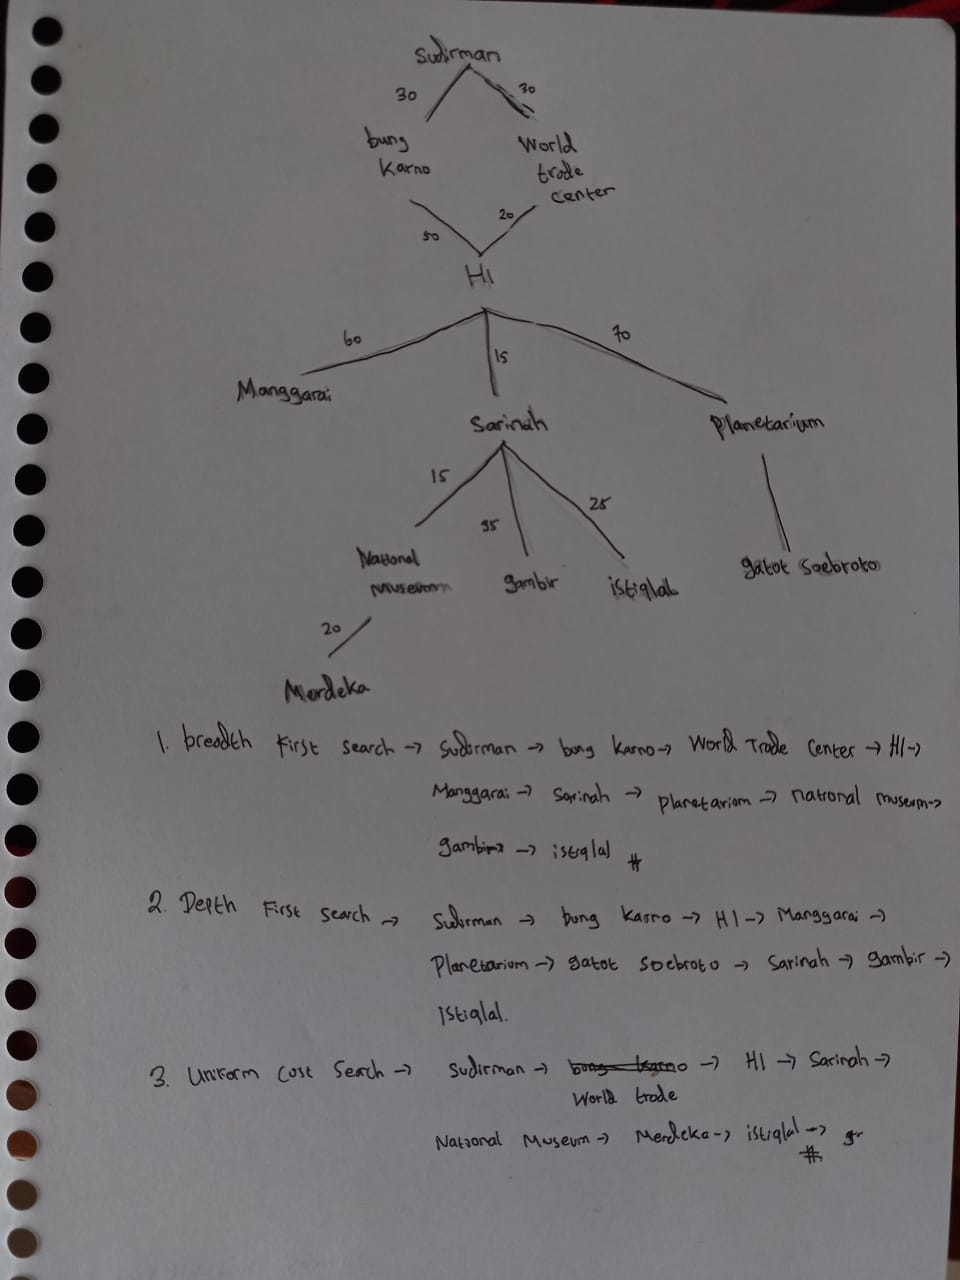 Sudirman
30 30
bung World
Karno trade
center
50 20
HI
60 15 70
Manggarai
Sarinah Planetarium
15 35 25
National gambir istiqlal gatot Soebroto
museum
20
Merdeka
1. breadth First search → Sudirman → bung Karno → World Trade Center → HI →
Manggarai → Sarinah → planetarium → national museum →
gambir → istiqlal #
2. Depth First Search → Sudirman → bung Karno → HI → Manggarai →
Planetarium → gatot soebroto → Sarinah → gambir →
istiqlal.
3. Uniform Cost Search → Sudirman → bung Karno → HI → Sarinah →
World trade
National Museum → Merdeka → istiqlal →
#